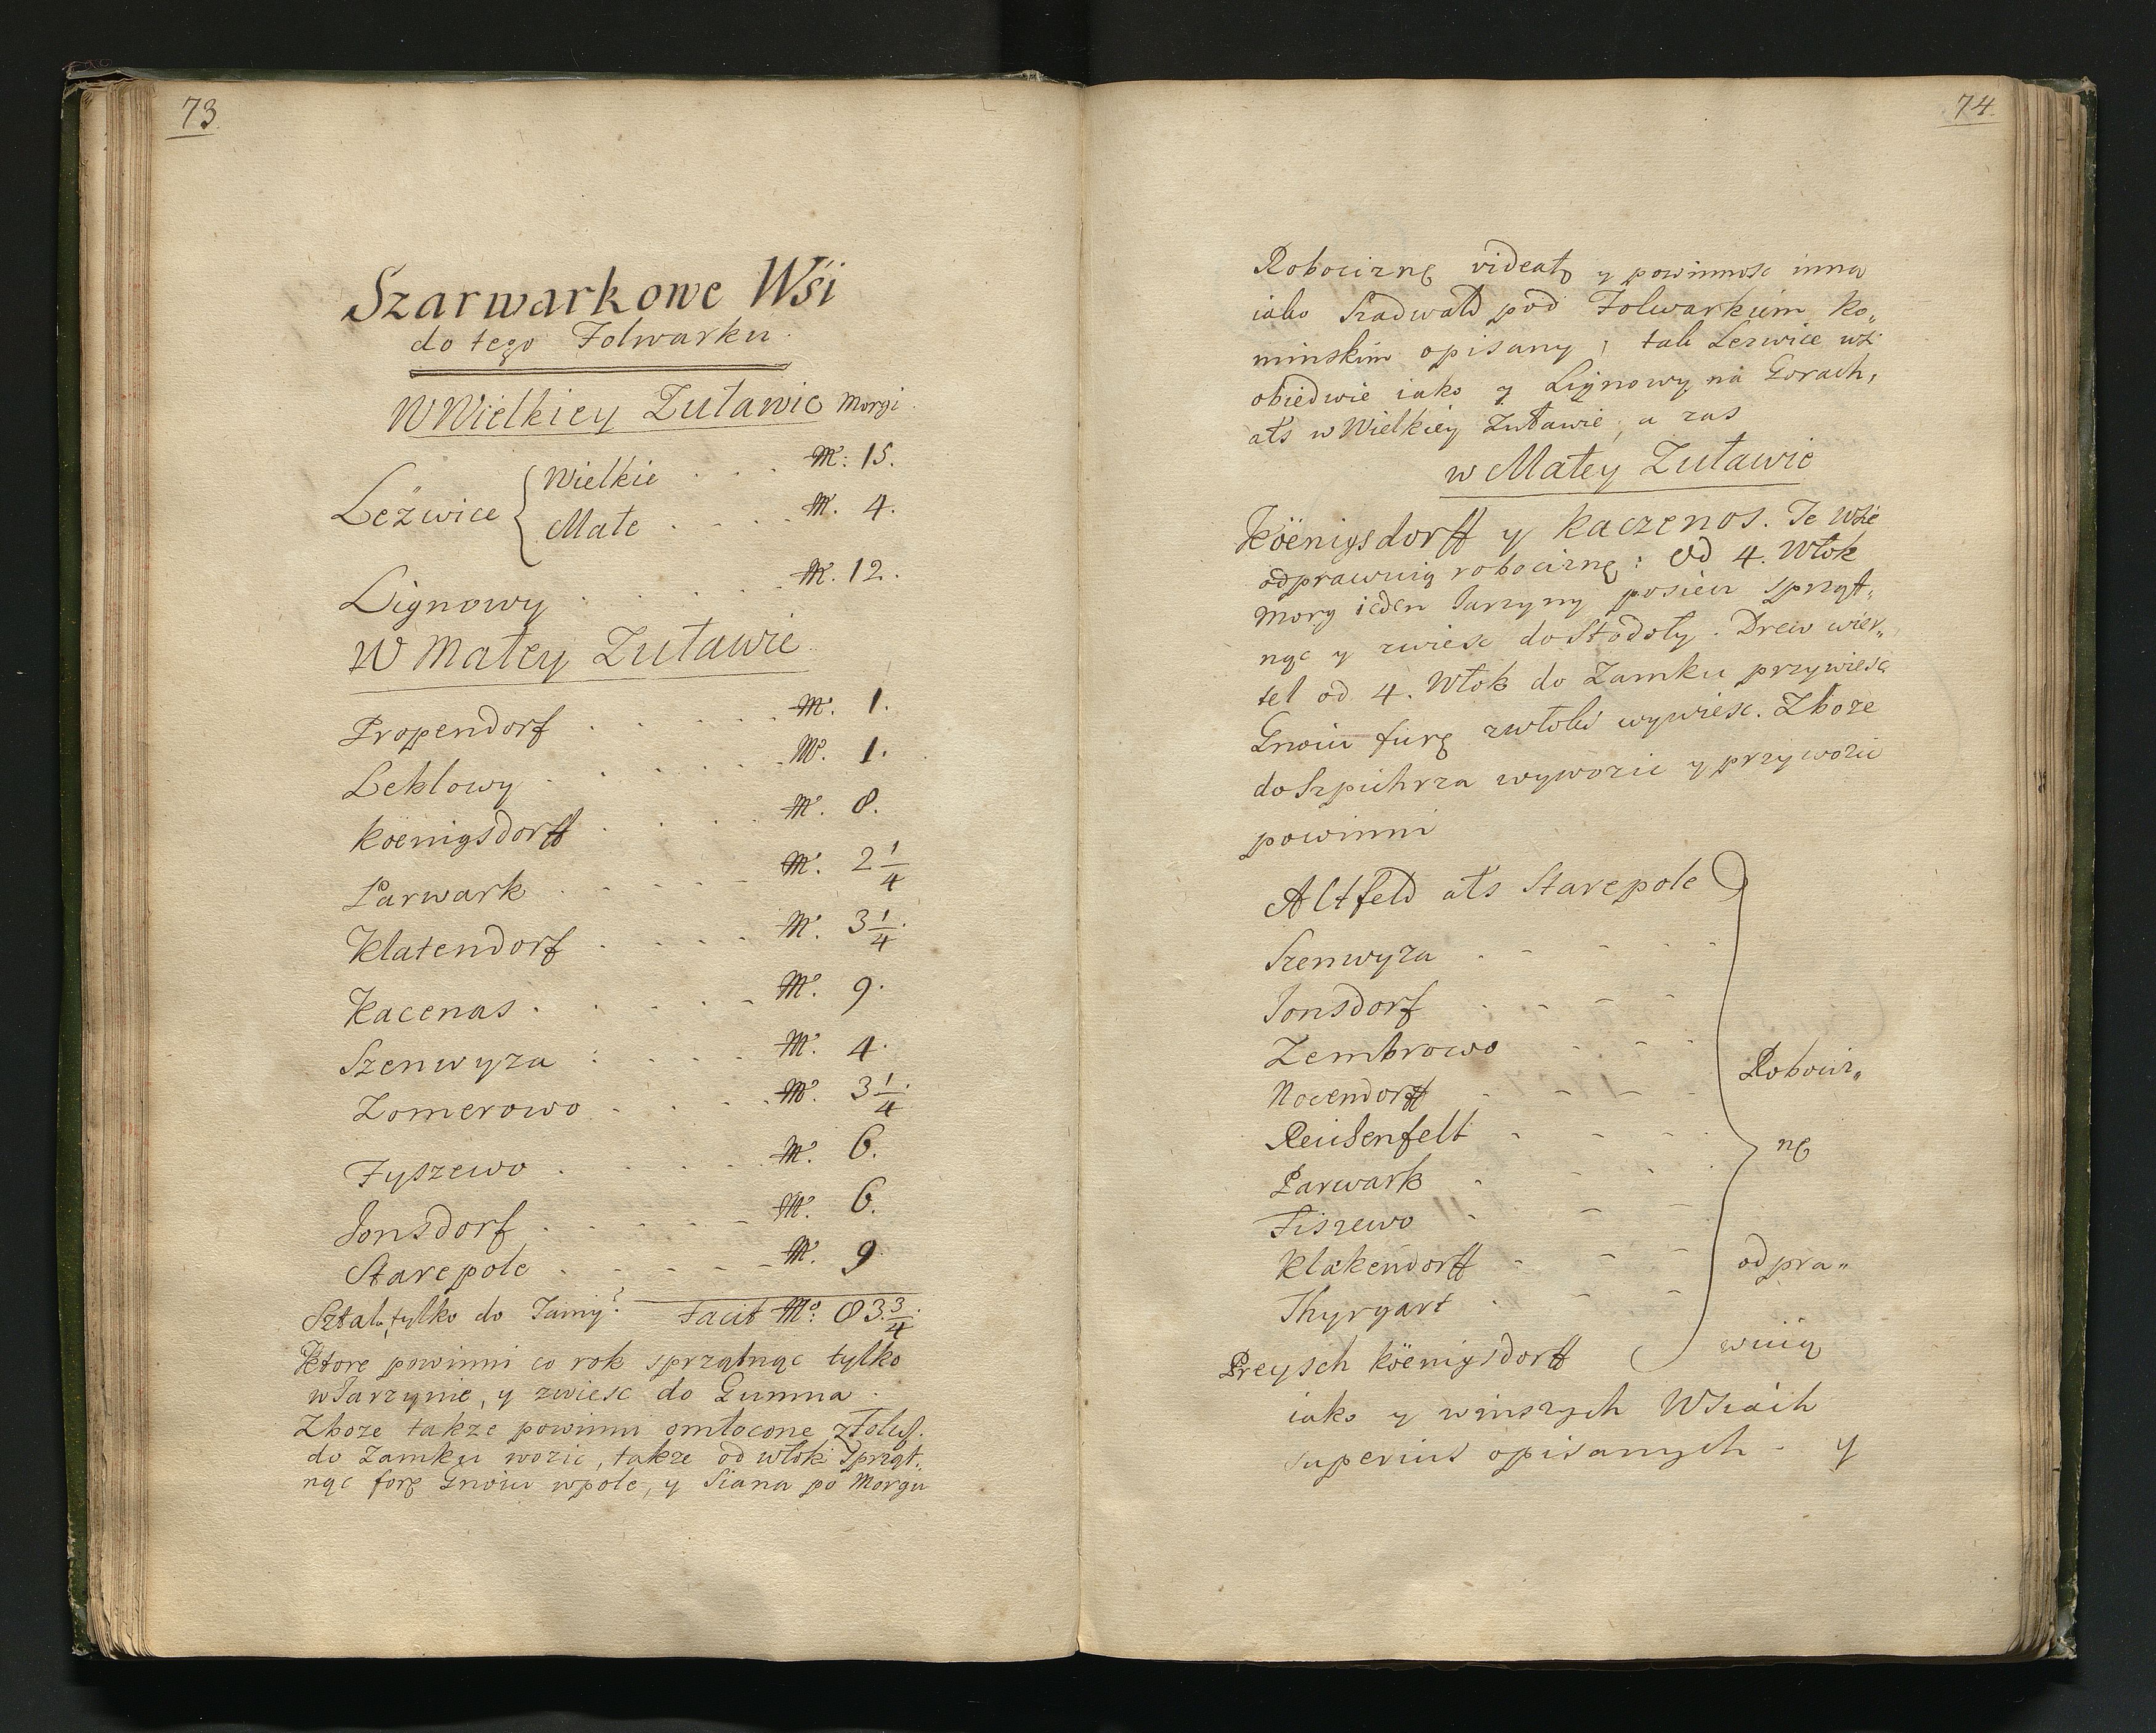 73
Szarwarkowe Wśi
do tego Folwarku.
W Wielkiey Zuławie Morgi.
Leźwice { Wielkie . . . M: 15.
Małe . . . . M. 4.
Lignowy . . . . M. 12.
W Małey Zuławie
Propendorf . . . . . M. 1.
Leklowy . . . . . M. 1.
Köenigsdorff . . . . M. 8.
Parwark . . . . . M. 2 1/4
Klatendorf . . . . M. 3 1/4.
Kacenas . . . . . M. 9.
Szenwyza . . . . M. 4.
Zomerowo . . . . M. 3 1/4.
Fyszewo . . . . . M. 6.
Jonsdorf . . . . . M. 6.
Starepole . . . . . M. 9.
tylko do Tamy. Facit Mo: 83 3/4.
Ktore powinni co rok sprzątnąc tylko
w Jarzynie, y zwiesc do Gumna.
Zboze takze powinni omłocone
do Zamku wozic, takze od włok Sprząt„
nąc forę Gnoiu wpole, y Siana po Morgu
74.
Robociznę videatr y powinnosc inną
iako Szadwałd pod Folwarkiem Ko„
minskim opisany, tak Lezwice wśi
obiedwie iako y Lignowy na Gorach,
ałs w Wielkiey Zuławie, a zas
w Małey Zuławie
Köenigsdorff y Kaczenos. Te Wśie
odprawuią robociznę: Od 4. Włok
Morg ieden Jarzyny posiew sprząt„
nąc y zwiesc do Stodoły. Drew wier„
tel od 4. Włok do Zamku przywiesc
Gnoiu furę zwłoki wywiesc. Zboze
do Szpichrza wywozic y przywozic
powinni
Altfeld ałs Starepole
Szenwyza . - - - -
Jonsdorf . - - -
Zembrowo - - -
Nocendorff . - - -
Reusenfelt - - -
Parwark - - -
Fiszewo - - -
Klakendorff - - -
Thyrgart . - -
Preysch Köenigsdorff
} Robociz„
nę
odpra„
wuią
iako y w inszych Wsiach
superius opisanych - y